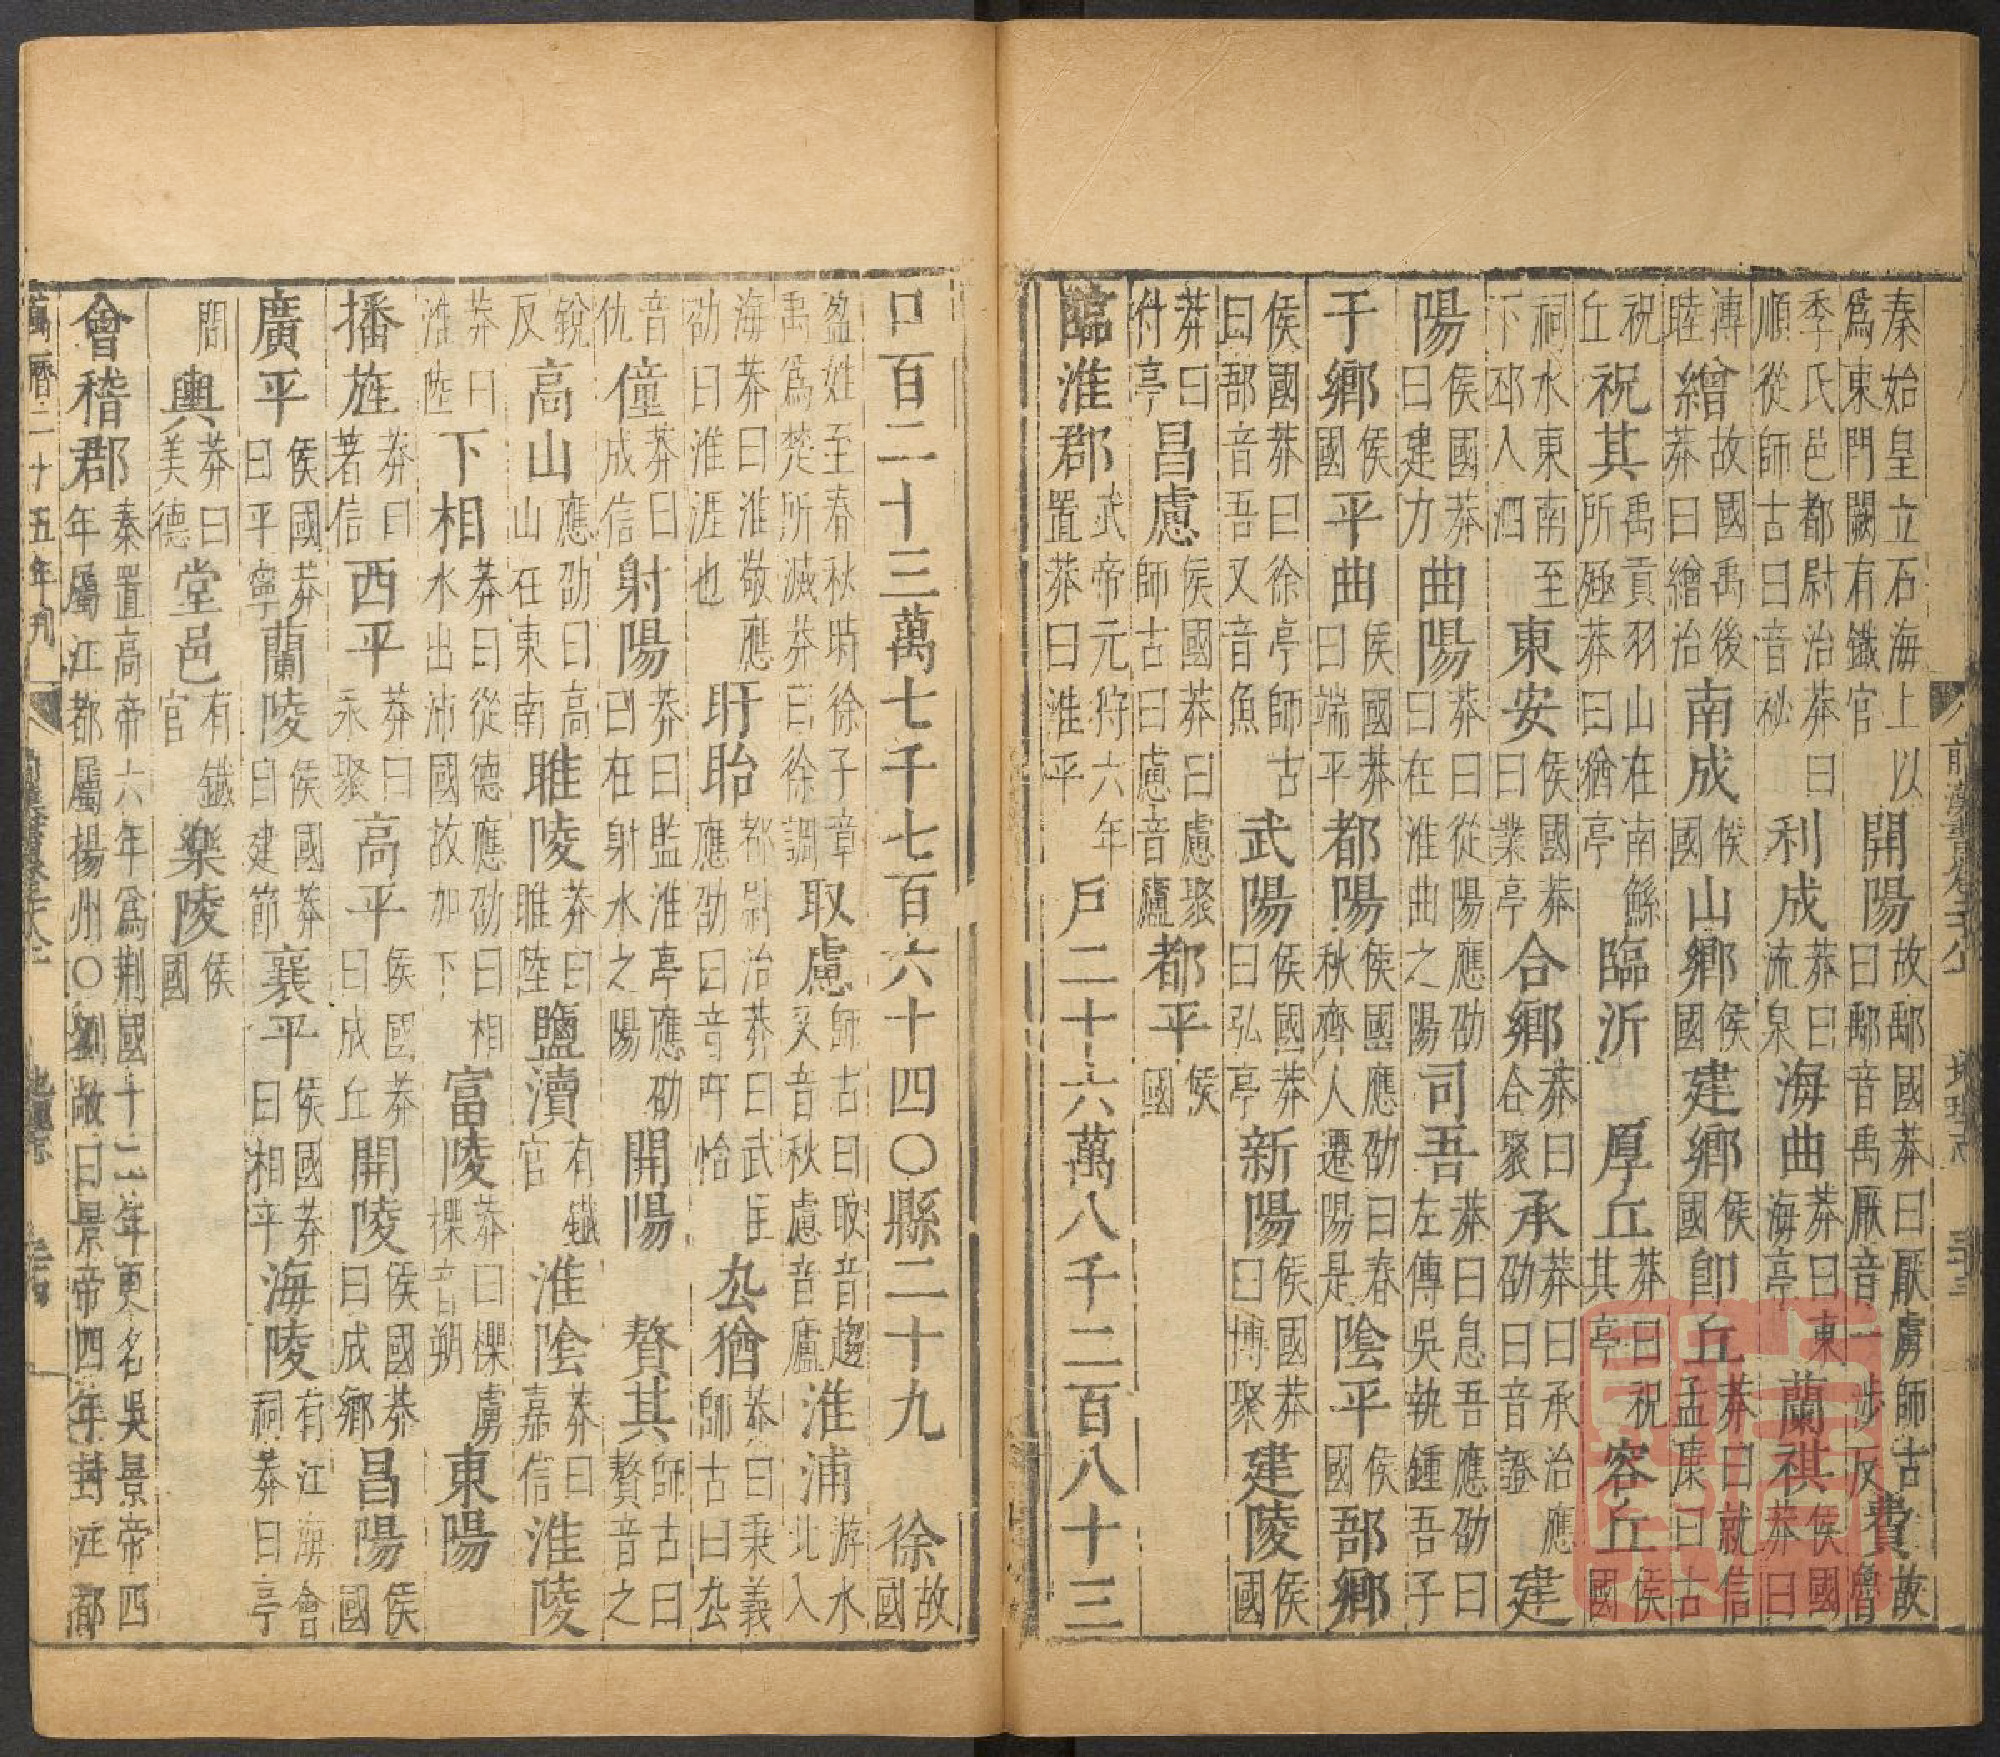 秦始皇立石海上以爲東門闕有鐵官開陽故鄅國莽曰厭虜師古曰鄅音禹厭音一涉反費故魯
季氏邑都尉治莽曰順從師古曰音祕利成莽曰流泉海曲莽曰東海亭蘭祺侯國莽曰
溥睦繒故國禹後莽曰繒治南成侯國山鄉侯國建鄉侯國卽丘莽曰就信孟康曰古
祝丘祝其禹貢羽山在南鯀所殛莽曰猶亭臨沂厚丘莽曰祝其亭容丘侯國
祠水東南至下邳入泗東安侯國莽曰業亭合鄉莽曰合聚承莽曰承治應劭曰音證建
陽侯國莽曰建力曲陽莽曰從陽應劭曰在淮曲之陽司吾莽曰息吾應劭曰左傳吳執鍾吾子
于鄉侯國平曲侯國莽曰端平都陽侯國應劭曰春秋齊人遷陽是陰平侯國郚鄉
侯國莽曰徐亭師古曰郚音吾又音魚武陽侯國莽曰弘亭新陽侯國莽曰博聚建陵侯國
莽曰付亭昌慮侯國莽曰慮聚師古曰慮音廬都平侯國
臨淮郡武帝元狩六年置莽曰淮平戶二十六萬八千二百八十三
口百二十三萬七千七百六十四〇縣二十九徐故國
盈姓至春秋時徐子章禹爲楚所滅莽曰徐調取慮師古曰取音趨又音秋慮音廬淮浦游水北入
海莽曰淮敬應劭曰淮涯也盱眙都尉治莽曰武匡應劭曰音吁怡厹猶莽曰秉義師古曰厹
音仇僮莽曰成信射陽莽曰監淮亭應劭曰在射水之陽開陽贅其師古曰贅音之
銳反高山應劭曰高山在東南睢陵莽曰睢陸鹽瀆有鐵官淮陰莽曰嘉信淮陵
莽曰淮陸下相莽曰從德應劭曰相水出沛國故加下富陵莽曰㯕虜㯕音朔東陽
播旌莽曰著信西平莽曰永聚高平侯國莽曰成丘開陵侯國莽曰成鄉昌陽侯國
廣平侯國莽曰平寧蘭陵侯國莽曰建節襄平侯國莽曰相平海陵有江海會祠莽曰亭
間輿莽曰美德堂邑有鐵官樂陵侯國
會稽郡秦置高帝六年爲荆國十二年更名吳景帝四年屬江都屬揚州〇劉敞曰景帝四年封江都
萬曆二十五年刊